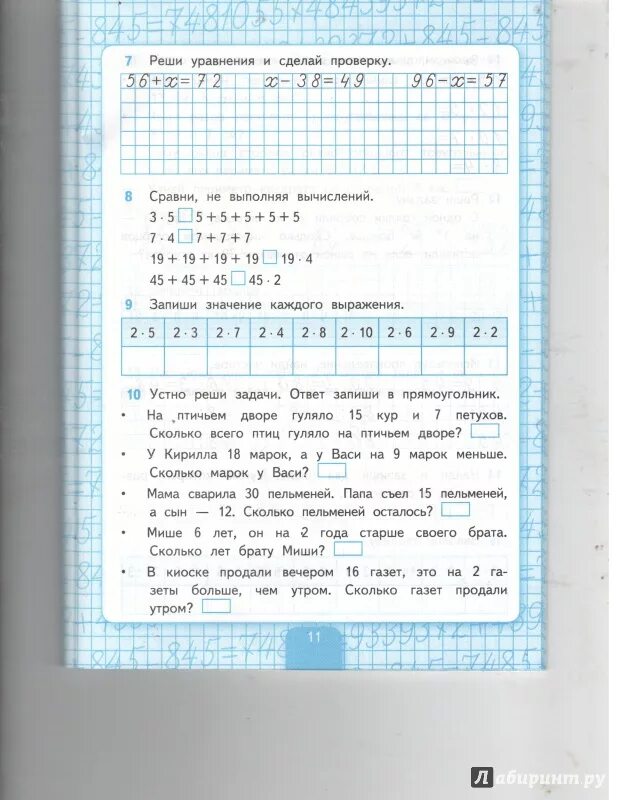 7 Реши уравнения и сделай проверку.
56+x=72 x-38=49 96-x=57
8 Сравни, не выполняя вычислений.
3 · 5 □ 5 + 5 + 5 + 5 + 5
7 · 4 □ 7 + 7 + 7
19 + 19 + 19 + 19 □ 19 · 4
45 + 45 + 45 □ 45 · 2
9 Запиши значение каждого выражения.
2 · 5 2 · 3 2 · 7 2 · 4 2 · 8 2 · 10 2 · 6 2 · 9 2 · 2
10 Устно реши задачи. Ответ запиши в прямоугольник.
• На птичьем дворе гуляло 15 кур и 7 петухов.
Сколько всего птиц гуляло на птичьем дворе?
• У Кирилла 18 марок, а у Васи на 9 марок меньше.
Сколько марок у Васи?
• Мама сварила 30 пельменей. Папа съел 15 пельменей,
а сын — 12. Сколько пельменей осталось?
• Мише 6 лет, он на 2 года старше своего брата.
Сколько лет брату Миши?
• В киоске продали вечером 16 газет, это на 2 га-
зеты больше, чем утром. Сколько газет продали
утром?
11
Лабиринт.ру